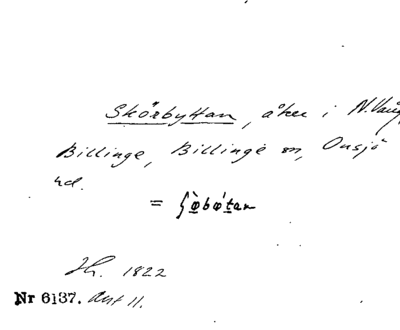 Skörbyttan, åker i N. Vång
Billinge, Billinge sn, Onsjö
hd.
= ʃø̀bø´tan
Jh. 1822
Nr 6137. Ant 11.